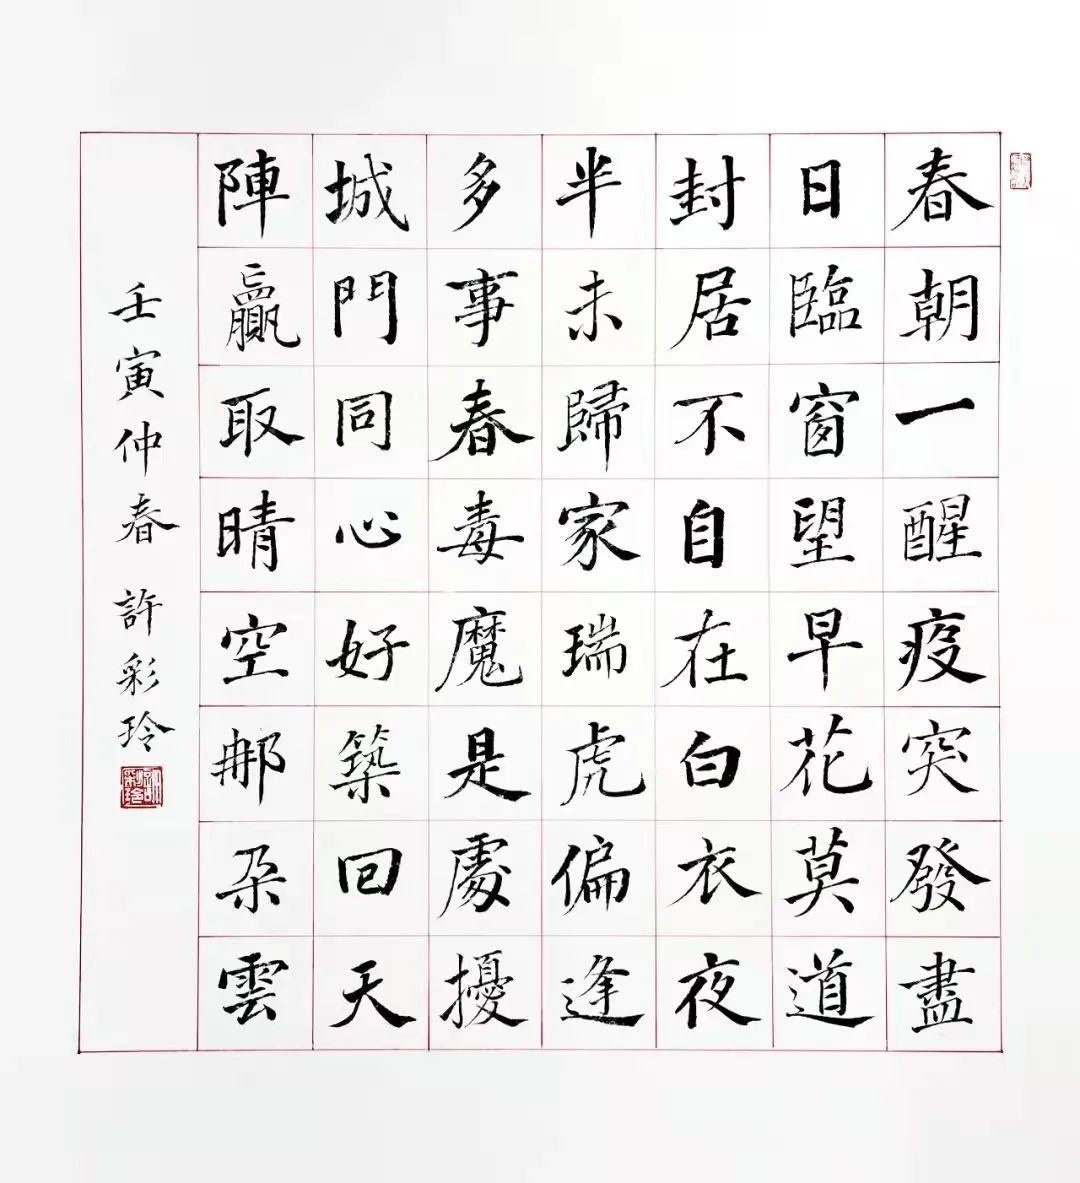 春朝一醒疫突發盡
日臨窗望早花莫道
封居不自在白衣夜
半未歸家瑞虎偏逢
多事春毒魔是處擾
城門同心好築回天
陣贏取晴空那朵雲
壬寅仲春 許彩玲